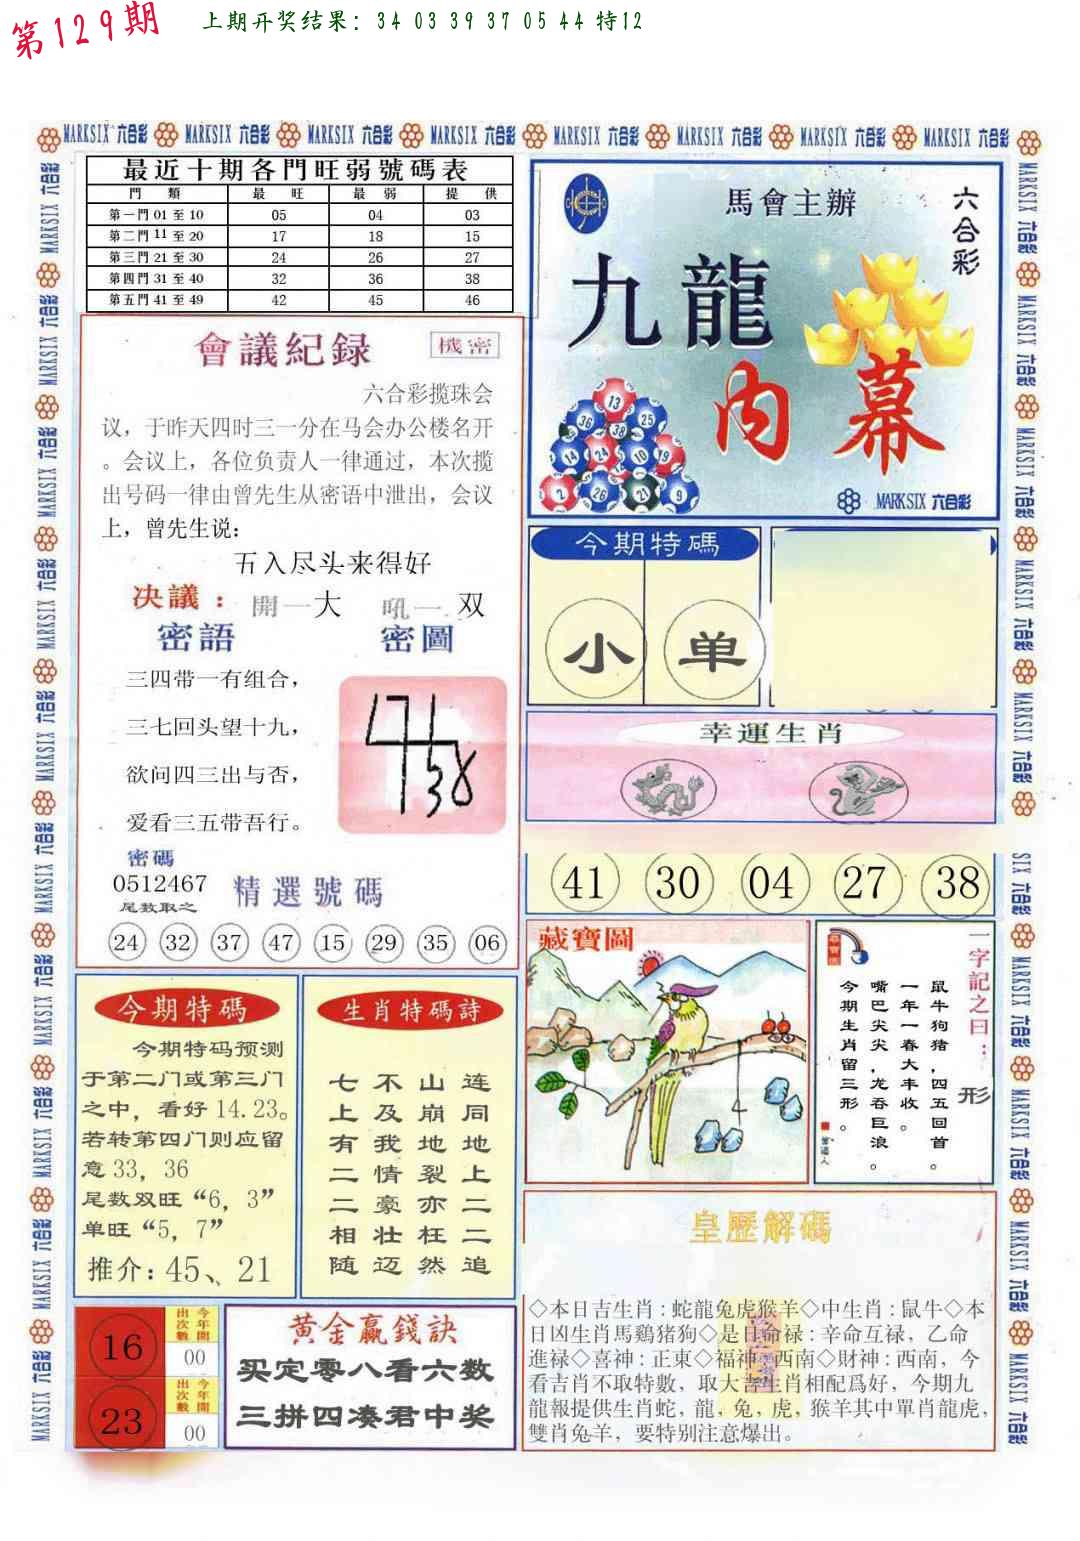 第129期
上期开奖结果：34 03 39 37 05 44 特12
MARKSIX 六合彩 MARKSIX 六合彩 MARKSIX 六合彩 MARKSIX 六合彩 MARKSIX 六合彩 MARKSIX 六合彩 MARKSIX 六合彩 MARKSIX 六合彩
最近十期各門旺弱號碼表
門類 最旺 最弱 提供
第一門 01 至 10 05 04 03
第二門 11 至 20 17 18 15
第三門 21 至 30 24 26 27
第四門 31 至 40 32 36 38
第五門 41 至 49 42 45 46
馬會主辦
六合彩
九龍
内幕
13
36 38 25
14 24 10 19
2 26 21 9
MARKSIX 六合彩
會議紀録
機密
六合彩搅珠会
议，于昨天四时三一分在马会办公楼名开
。会议上，各位负责人一律通过，本次搅
出号码一律由曾先生从密语中泄出，会议
上，曾先生说：
五入尽头来得好
决議：開一大 吼一双
密語
密圖
三四带一有组合，
三七回头望十九，
欲问四三出与否，
爱看三五带吾行。
密碼
0512467
尾数取之
精選號碼
24 32 37 47 15 29 35 06
今期特碼
小 单
幸運生肖
41 30 04 27 38
藏寶圖
一字記之曰：
形
鼠牛狗猪，四五回首。
一年一春大丰收。
嘴巴尖尖，龙吞巨浪。
今期生肖留三形。
今期特碼
今期特码预测
于第二门或第三门
之中，看好 14.23。
若转第四门则应留
意 33，36
尾数双旺“6，3”
单旺“5，7”
推介：45、21
生肖特碼詩
七不山连
上及崩同
有我地地
二情裂上
二豪亦二
相壮枉二
随迈然追
16
今年開出次數
00
23
今年開出次數
00
黄金赢錢訣
买定零八看六数
三拼四凑君中奖
皇歷解碼
◇本日吉生肖：蛇龍兔虎猴羊◇中生肖：鼠牛◇本
日凶生肖馬鷄猪狗◇是日命禄：辛命互禄，乙命
進禄◇喜神：正東◇福神：西南◇財神：西南，今
看吉肖不取特數，取大吉生肖相配爲好，今期九
龍報提供生肖蛇，龍，兔，虎，猴羊其中單肖龍虎，
雙肖兔羊，要特别注意爆出。